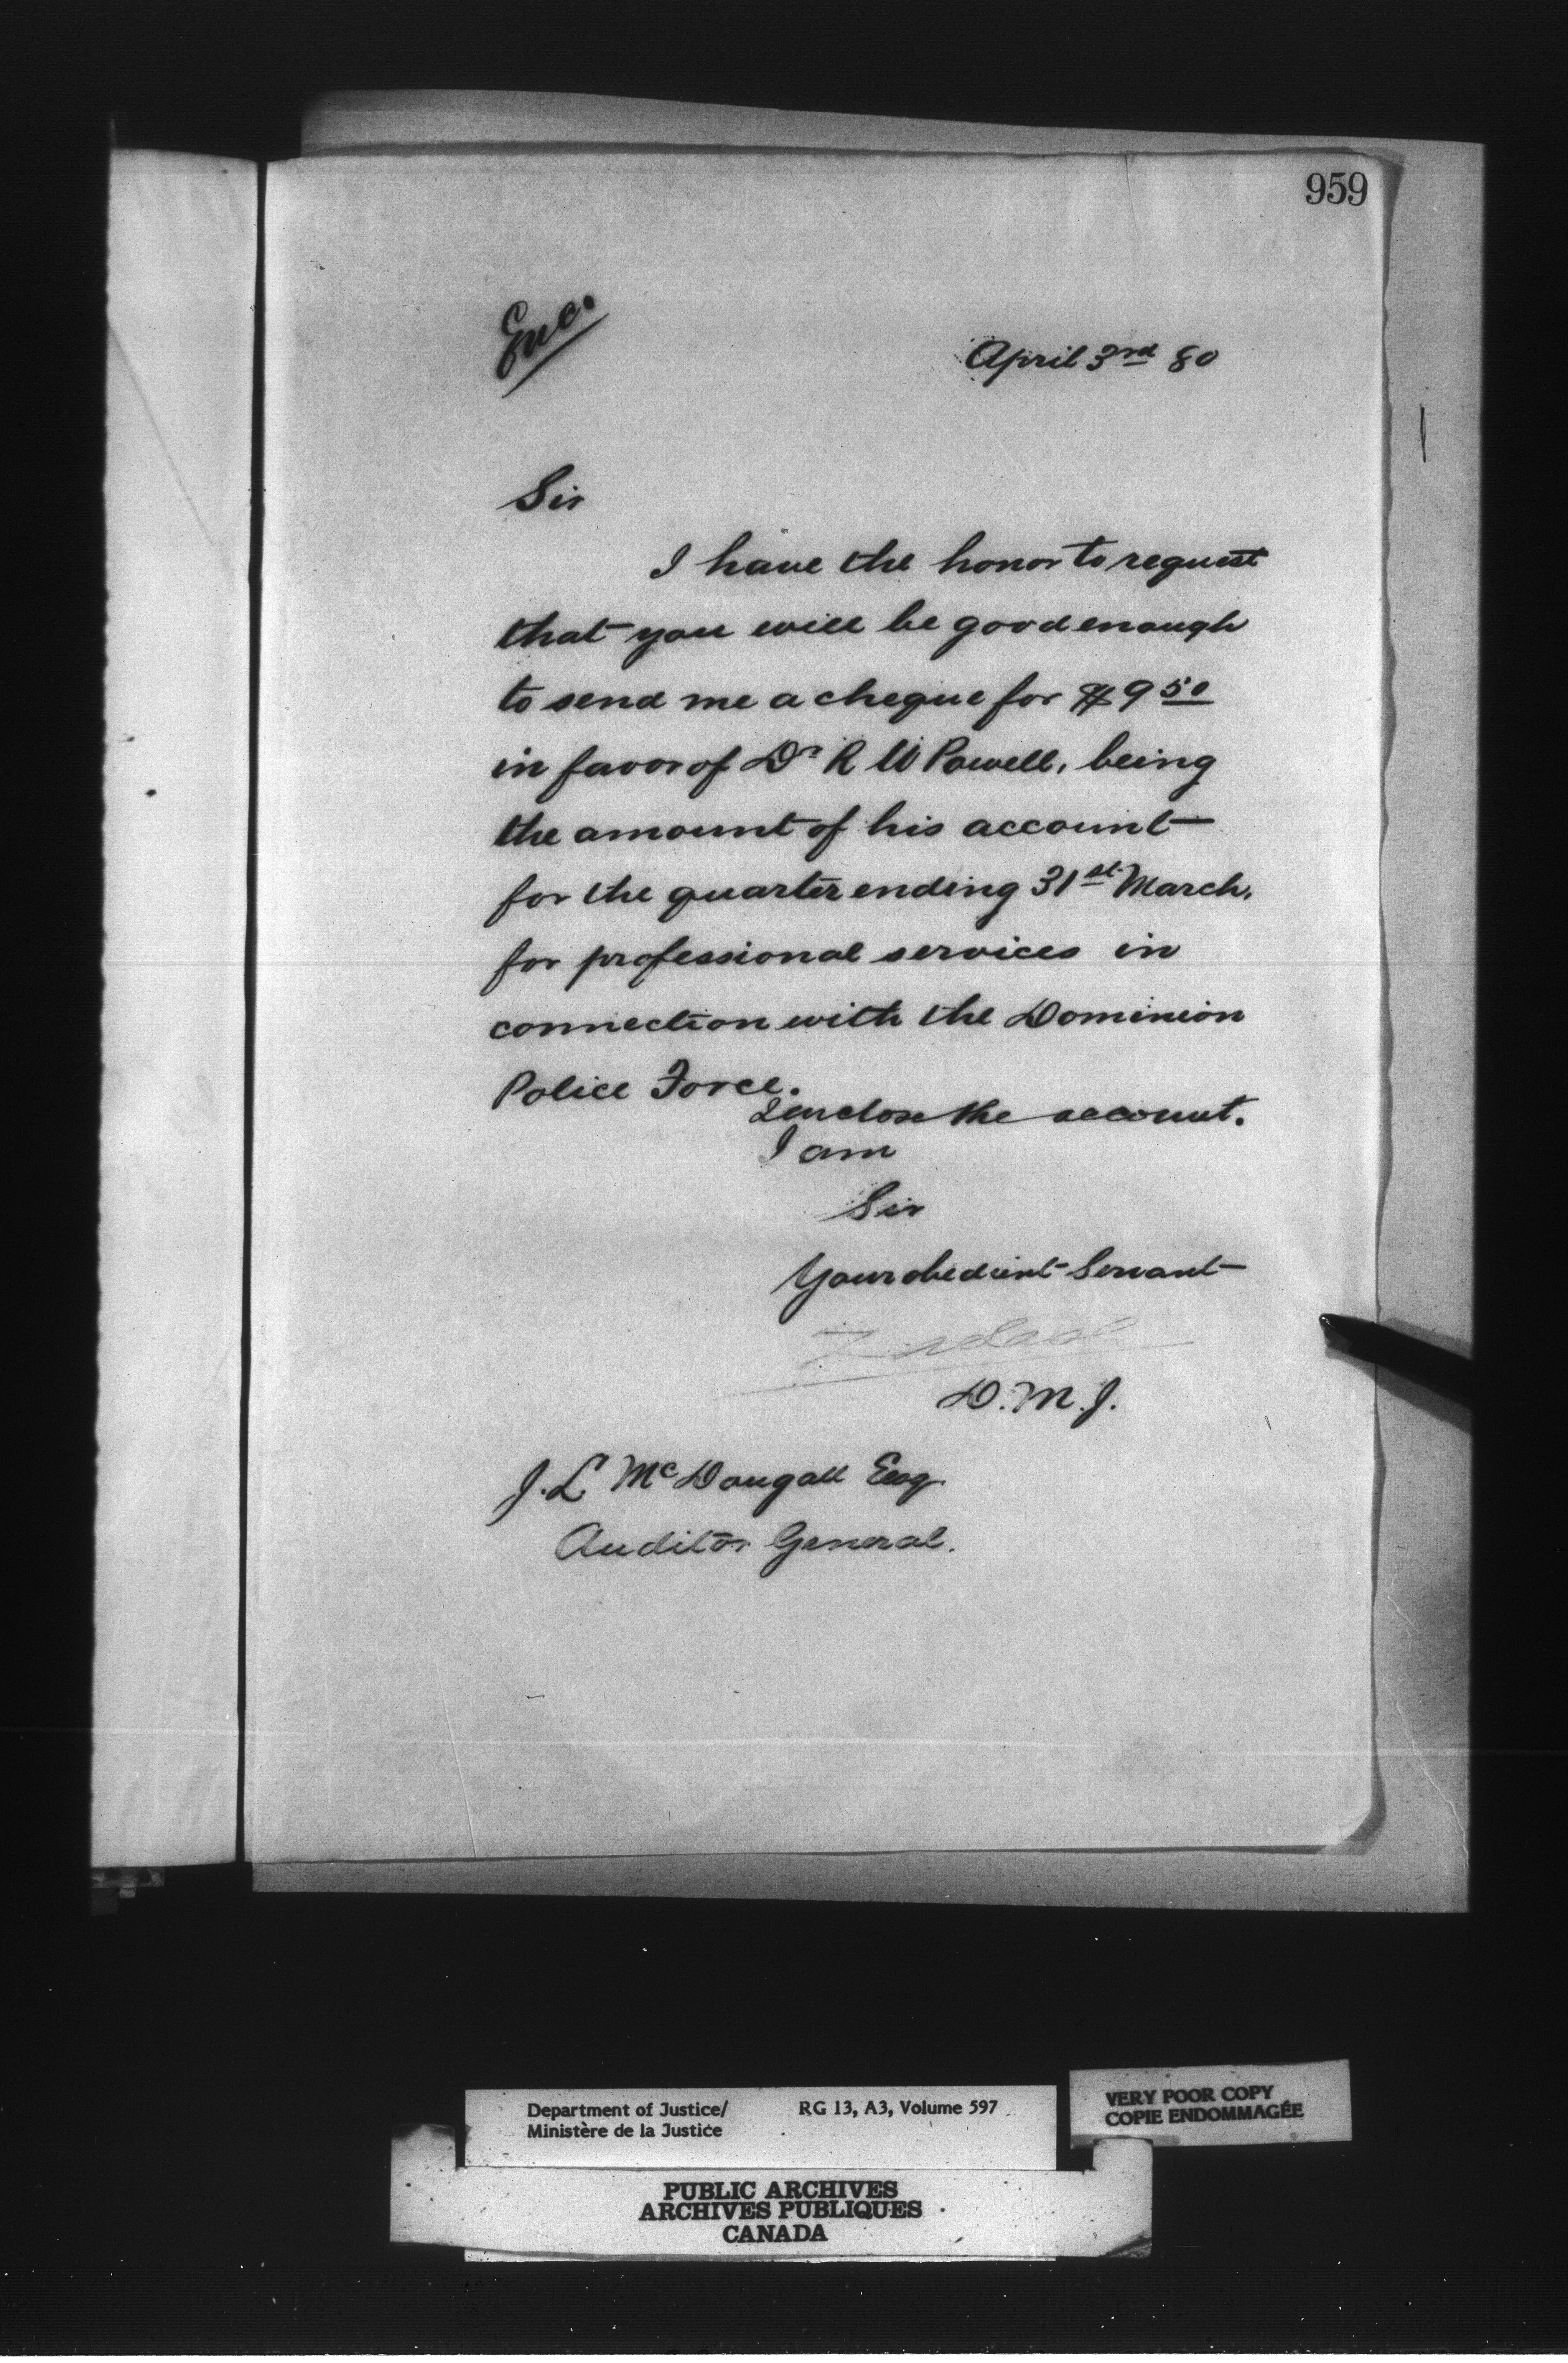 959
Enc.
April 3rd 80
Sir
I have the honor to request
that you will be good enough
to send me a cheque for $9 50
in favor of Dr R W Powell, being
the amount of his account
for the quarter ending 31st March,
for professional services in
connection with the Dominion
Police Force.
I enclose the account.
I am
Sir
Your obedient Servant
D.M.J.
J. L. McDougall Esq
Auditor General.
Department of Justice/
Ministère de la Justice
RG 13, A3, Volume 597
VERY POOR COPY
COPIE ENDOMMAGÉE
PUBLIC ARCHIVES
ARCHIVES PUBLIQUES
CANADA